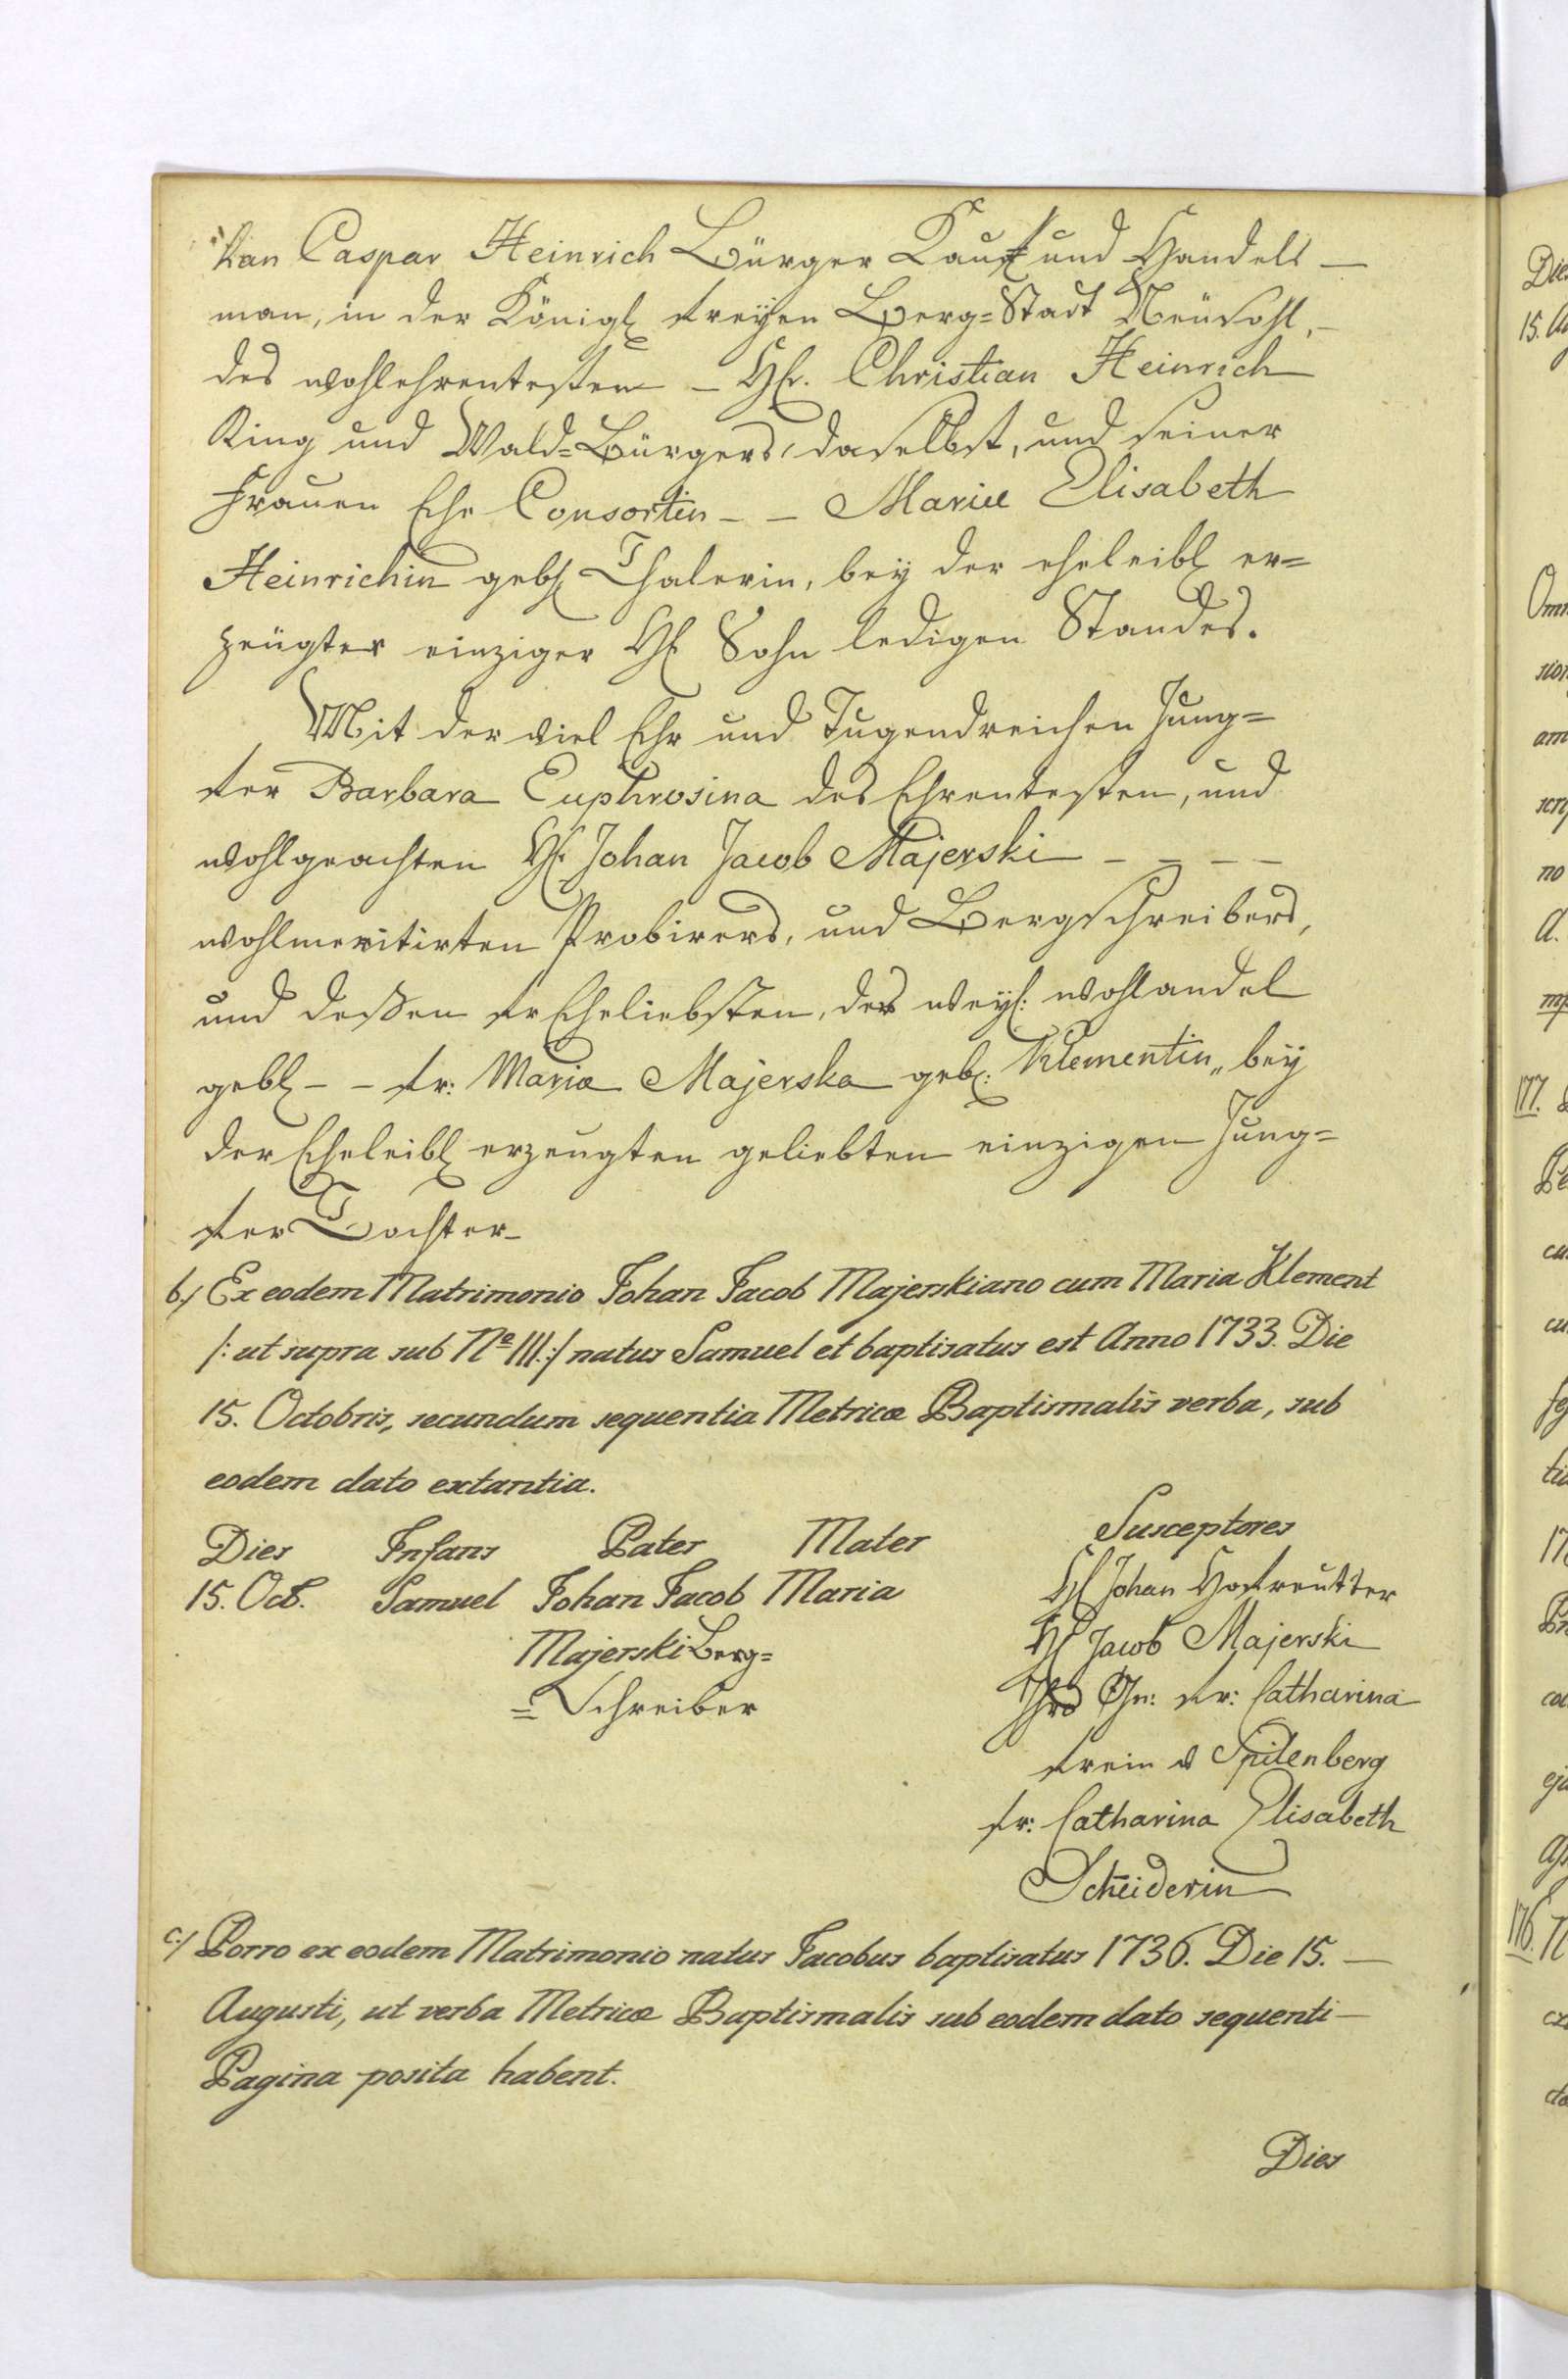 han Caspar Heinrich Bürger Kauf und Handels —
man, in der Königl freÿen Berg=Stadt Neüsohl, —
des wohlehrenfesten — H. Christian Heinrich
Ring und Wald=Bürgers, daselbst, und seiner
Frauen Ehe Consortin — — Mariæ Elisabeth
Heinrichin geb. Thalerin, beÿ der eheleibl er=
zeügter einziger H Sohn ledigen Standes.
Mit der viel Ehr und Tugendreichen Jung=
fer Barbara Euphrosina des Ehrenfesten, und
wohlgeachten H. Johan Jacob Majerski — — — —
wohlmeritirten Probirers, und Bergschreibers,
und deßen fr Eheliebsten, der weÿl: wohlandel
gebl — — fr: Maria Majerska geb: Klementin„ beÿ
der Eheleibl erzeugten geliebten einzigen Jung=
fer Tochter—
b./ Ex eodem Matrimonio Johan Jacob Majerskiano cum Maria Klement
/: ut supra sub Nº III. :/ natus Samuel et baptisatus est Anno 1733. Die
15. Octobris, secundum sequentia Metricæ Baptismalis verba, sub
eodem dato extantia.
Dies Infans Pater Mater Susceptores
15. Oct. Samuel Johan Jacob Maria H Johan Hofreutter
Majerski Berg= H Jacob Majerski
=Schreiber Ihro Gn: fr: Catharina
frein v Spilenberg
fr: Catharina Elisabeth
Scheiderin
c./ Porro ex eodem Matrimonio natus Jacobus baptisatus 1736. Die 15. —
Augusti, ut verba Metricæ Baptismalis sub eodem dato sequenti —
Pagina posita habent.
Dies